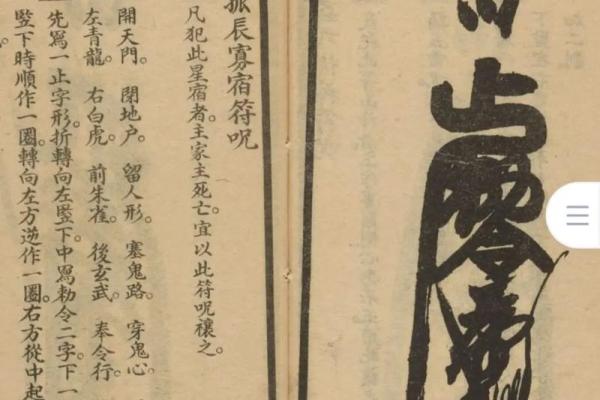 振辰寡宿符呪
凡犯此星宿者。主家主死亡。宜以此符呪禳之。
開天門。閉地户。留人形。塞鬼路。穿鬼心。
左青龍。右白虎。前朱雀。後玄武。奉令行。
先寫一止字形。折轉向左竪下。中寫勅令二字。下一
竪下時順作一圈轉向左方逆作一圈。右方從中起